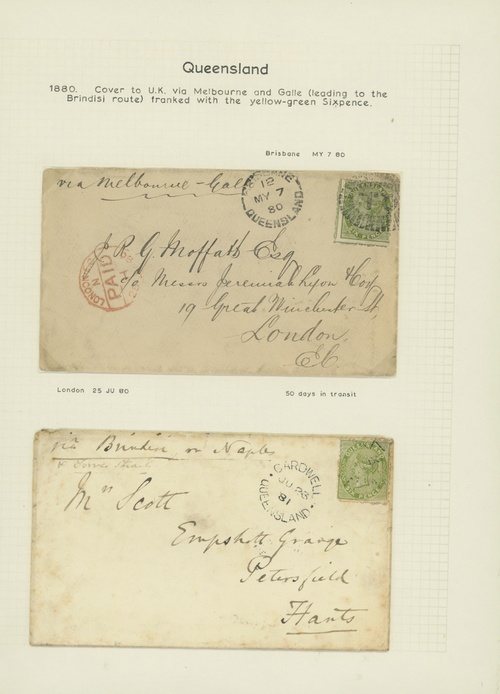 Queensland
1880. Cover to U.K. via Melbourne and Galle (leading to the
Brindisi route) franked with the yellow-green Sixpence.
Brisbane MY 7 80
via Melbourne - Galle
BRISBANE
12
MY 7
80
QUEENSLAND
R. G. Moffatt Esq
c/o Messrs Jeremiah Lyon & Coy
19 Great Winchester St,
London.
E.C.
LONDON
PAID
London 25 JU 80
50 days in transit
via Brindisi or Naples
CARDWELL
JU 23
81
QUEENSLAND
Mrs Scott
Empshott Grange
Petersfield
Hants